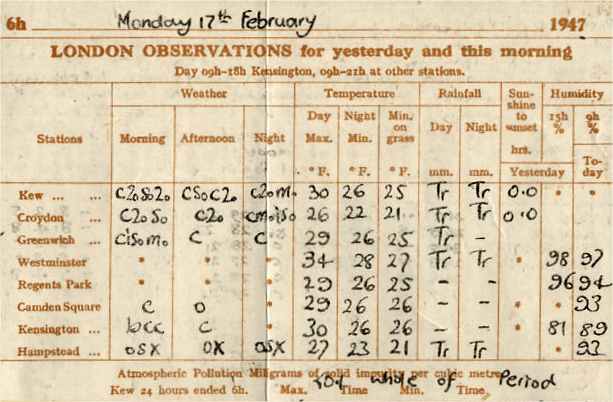 6h Monday 17th February 1947
LONDON OBSERVATIONS for yesterday and this morning
Day 09h-18h Kensington, 09h-21h at other stations.
Weather Temperature Rainfall Sun-shine to sunset Humidity
Stations Morning Afternoon Night Day Max. Night Min. Min. on grass Day Night hrs. 15h % 9h %
° F. ° F. ° F. mm. mm. Yesterday To-day
Kew ... ... c2os2o csoc2o c2om. 30 26 25 Tr Tr 0.0 * *
Croydon ... c2oso c2o 26 22 21 Tr Tr 0.0 * *
Greenwich ... c c 29 26 25 Tr -
Westminster * * * 34 28 27 Tr Tr * 98 97
Regents Park * * * 29 26 25 - - * 96 94
Camden Square c o 29 26 26 - - * * 93
Kensington ... bcc c 30 26 26 - - * 81 89
Hampstead ... osx ox osx 27 23 21 Tr Tr * 93
Atmospheric Pollution Milligrams of solid impurity per cubic metre
Kew 24 hours ended 6h. Max. Time Min. Time
whole of Period